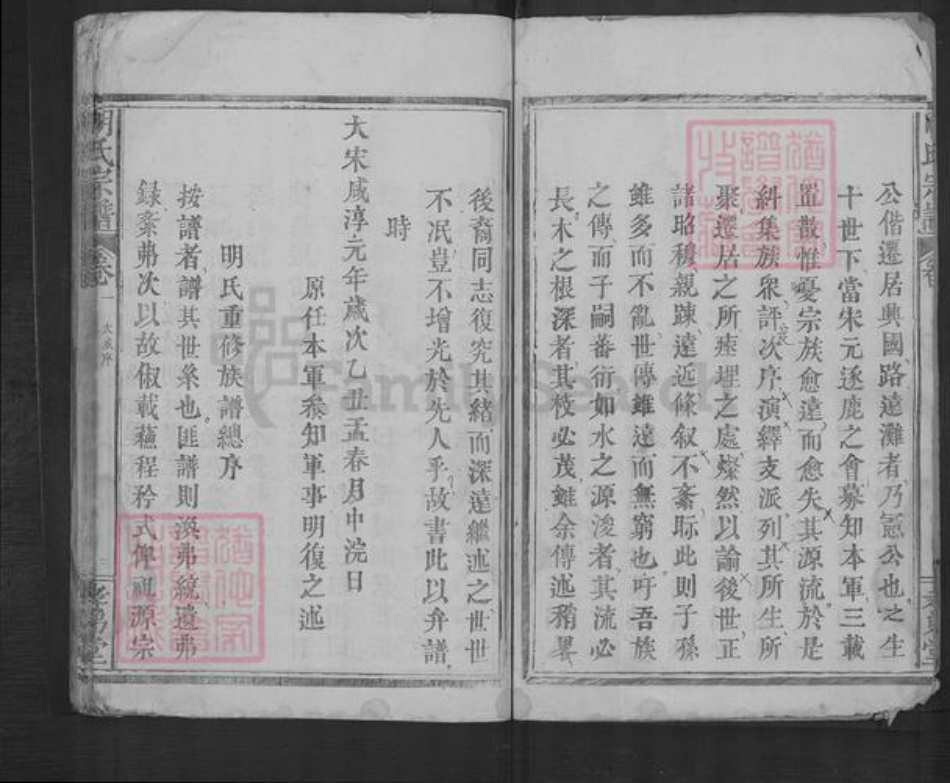 公偕遷居興國路遠灘者乃憲公也之生
十世下當宋元逐鹿之會募知本軍三載
置散惟憂宗族愈遠而愈失其源流於是
糾集族衆評次序演繹支派列其所生所
聚遷居之所瘞埋之處燦然以諭後世正
諸昭穆親踈遠近條叙不紊眎此則子孫
雖多而不亂世傳雖遠而無窮也吁吾族
之傳而子嗣蕃衍如水之源浚者其流必
長木之根深者其枝必茂雖余傳述稍畧
後裔同志復究其緒而深遠繼述之世世
不泯豈不增光於先人乎故書此以弁譜
時
大宋咸淳元年歲次乙丑孟春月中浣日
原任本軍叅知軍事明復之述
明氏重修族譜總序
按譜者譜其世系也匪譜則渙弗統遺弗
録紊弗次以故俶載蘓程矜式俾祖源宗
明氏宗譜
卷一
大成序
FamilySearch